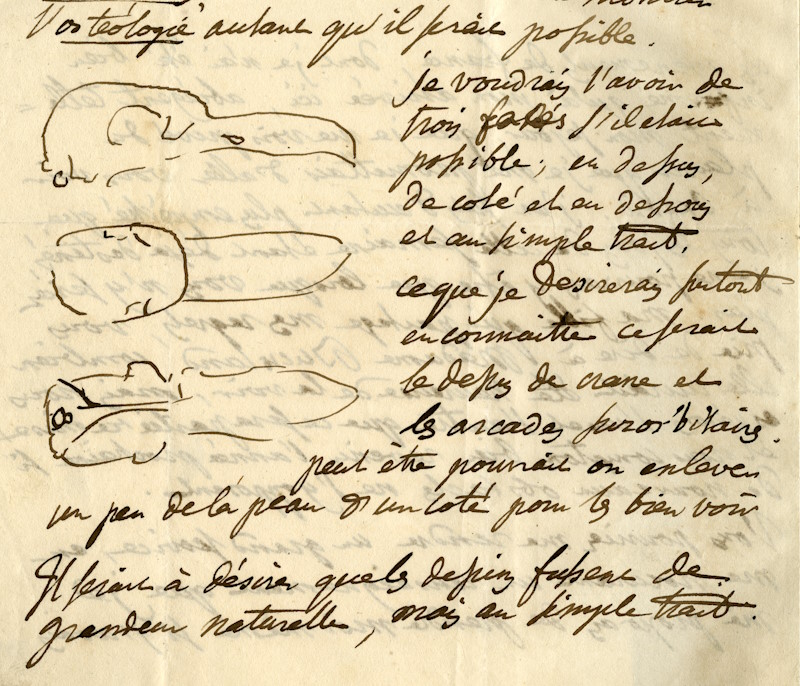 montrer
l'ostéologie autant qu'il serait possible.
je voudrais l'avoir de
trois fasés s'il etait
possible; en dessus,
de coté et en dessous
et au simple trait.
ce que je desirerais surtout
en connaitre ce serait
le dessus de crane et
les arcades surorbitaire.
peut être pourrait on enlever
un peu de la peau d'un coté pour les bien voir
Il serait à désirer que les dessins fussent de
grandeur naturelle, mais au simple trait.